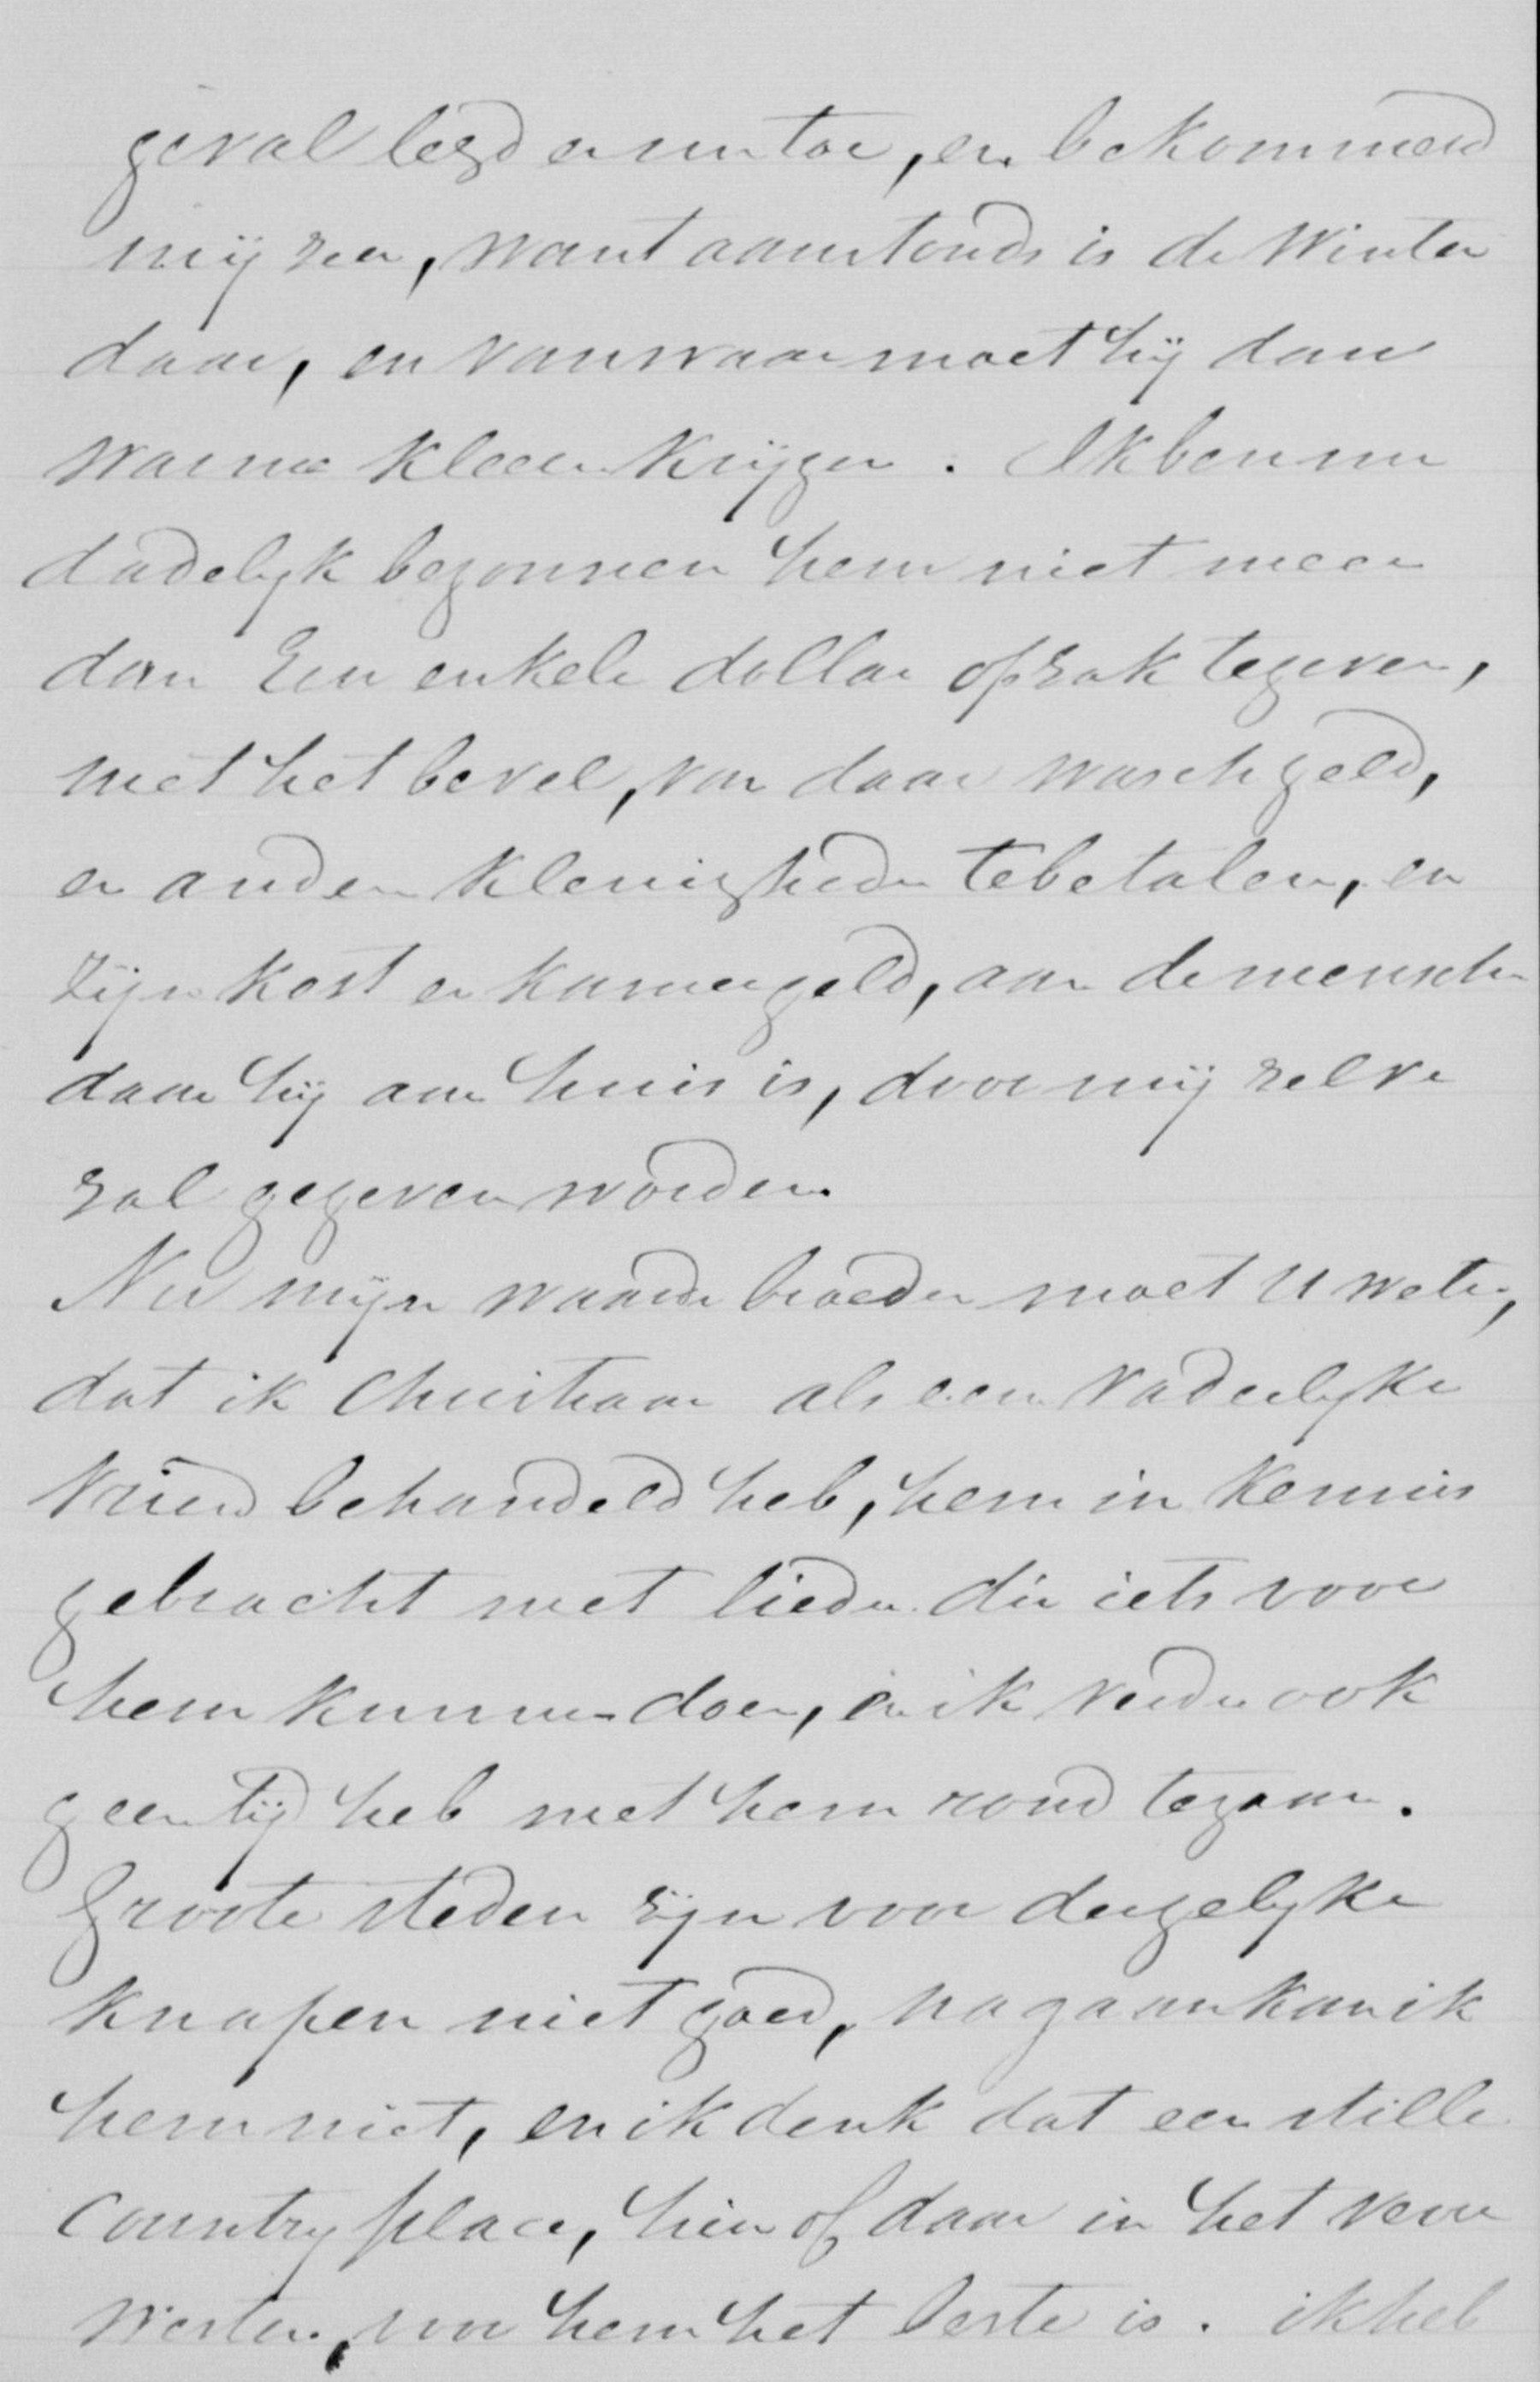 geval legd er nu toe, en bekommerd
mij zeer, want aanstonds is de Winter
daar, en vanwaar moet hij dan
warme kleeren krijgen. Ik ben nu
dadelyk begonnen hem niet meer
dan Een enkele dollar opzak tegeven,
met het bevel, van daar waschgeld,
en andere kleinigheden tebetalen, en
zijn kost en kamergeld, aan de menschen
daar hij aan huis is, door mij zelve
zal gegeven worden.
Nu mijn waarde broeder moet U weten,
dat ik Christiaan als een Vaderlyke
Vriend behandeld heb, hem in kennis
gebracht met lieden die iets voor
hem kunnen doen, en ik verder ook
geen tijd heb met hem rond tegaan.
Groote steden zijn voor dergelyke
knapen niet goed, nagaan kan ik
hem niet, en ik denk dat een stille
country place, hier of daar in het verre
Westen, voor hem het beste is. ik heb